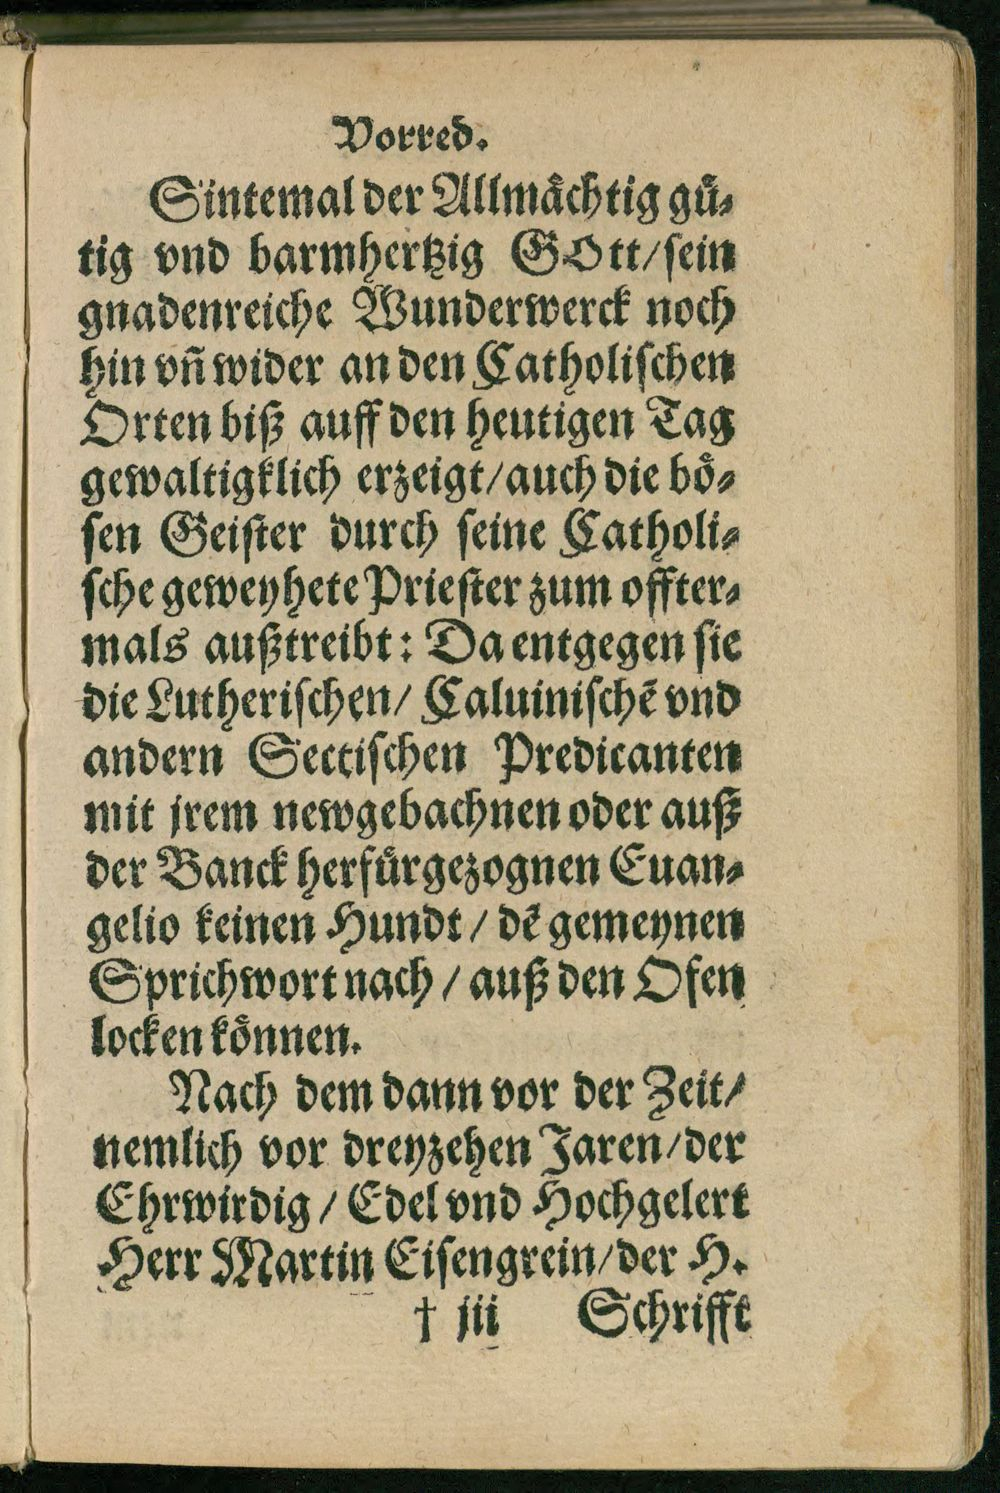 Vorred.
Sintemal der Allmächtig gü-
tig vnd barmhertzig GOtt/sein
gnadenreiche Wunderwerck noch
hin vñ wider an den Catholischen
Orten biß auff den heutigen Tag
gewaltigklich erzeigt/auch die bö-
sen Geister durch seine Catholi-
sche geweyhete Priester zum offter-
mals außtreibt: Da entgegen sie
die Lutherischen/ Caluinischẽ vnd
andern Sectischen Predicanten
mit jrem newgebachnen oder auß
der Banck herfürgezognen Euan-
gelio keinen Hundt / dẽ gemeynen
Sprichwort nach / auß den Ofen
locken können.
Nach dem dann vor der Zeit/
nemlich vor dreyzehen Jaren/der
Ehrwirdig / Edel vnd Hochgelert
Herr Martin Eisengrein/der H.
† iii Schrifft